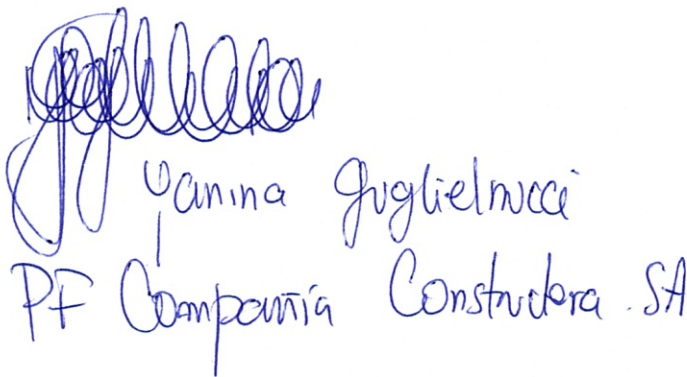 Yanina Guglielmucci
PF Compañía Constructora. SA